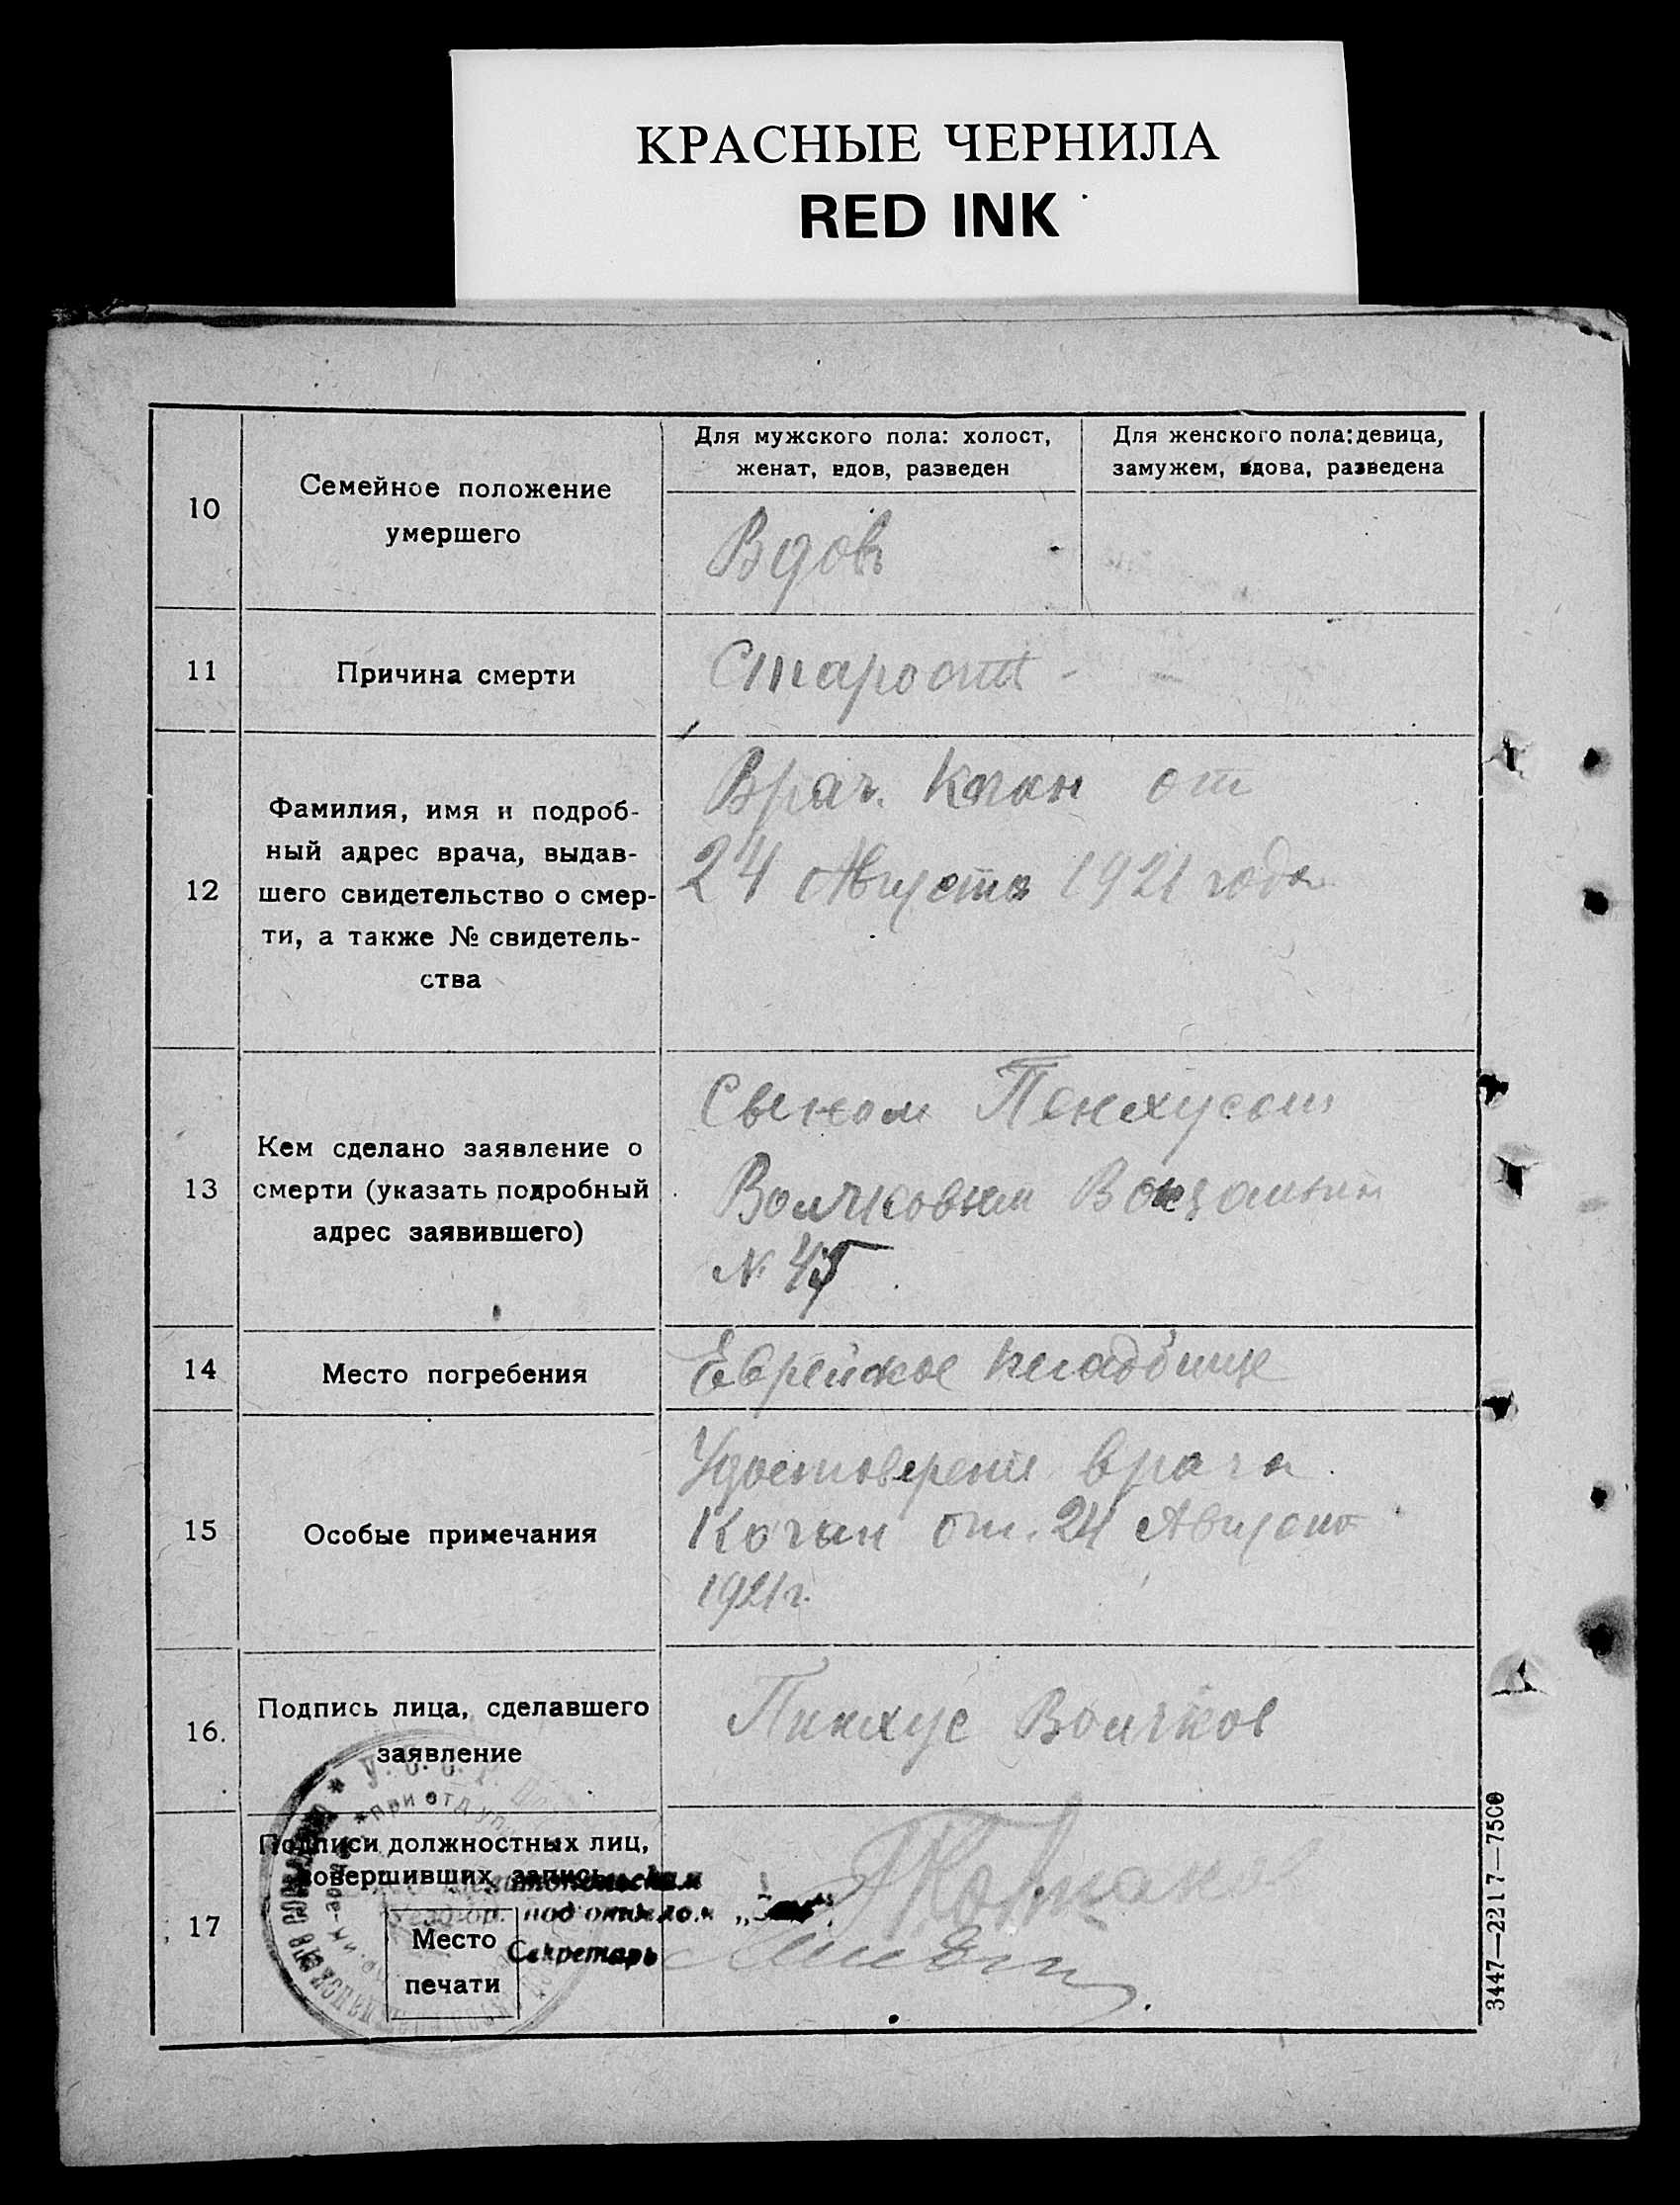 КРАСНЫЕ ЧЕРНИЛА
RED INK
10
Семейное положение
умершего
Для мужского пола: холост,
женат, вдов, разведен
Для женского пола: девица,
замужем, вдова, разведена
Вдовъ
11
Причина смерти
Старость
12
Фамилия, имя и подроб-
ный адрес врача, выдав-
шего свидетельство о смер-
ти, а также № свидетель-
ства
Врач. Коган от
24 Августа 1921 года
13
Кем сделано заявление о
смерти (указать подробный
адрес заявившего)
Сыном Пенхусом
Волчковым
№ 45
14
Место погребения
Еврейское кладбище
15
Особые примечания
Удостоверение врача
Коган от. 24 Августа
1921 г.
16.
Подпись лица, сделавшего
заявление
Пинхус Волчков
17
Подписи должностных лиц,
совершивших запись
под отделом „
Место
печати
Секретарь
У. С. С. Р.
при отд упр
3447—2217—7500